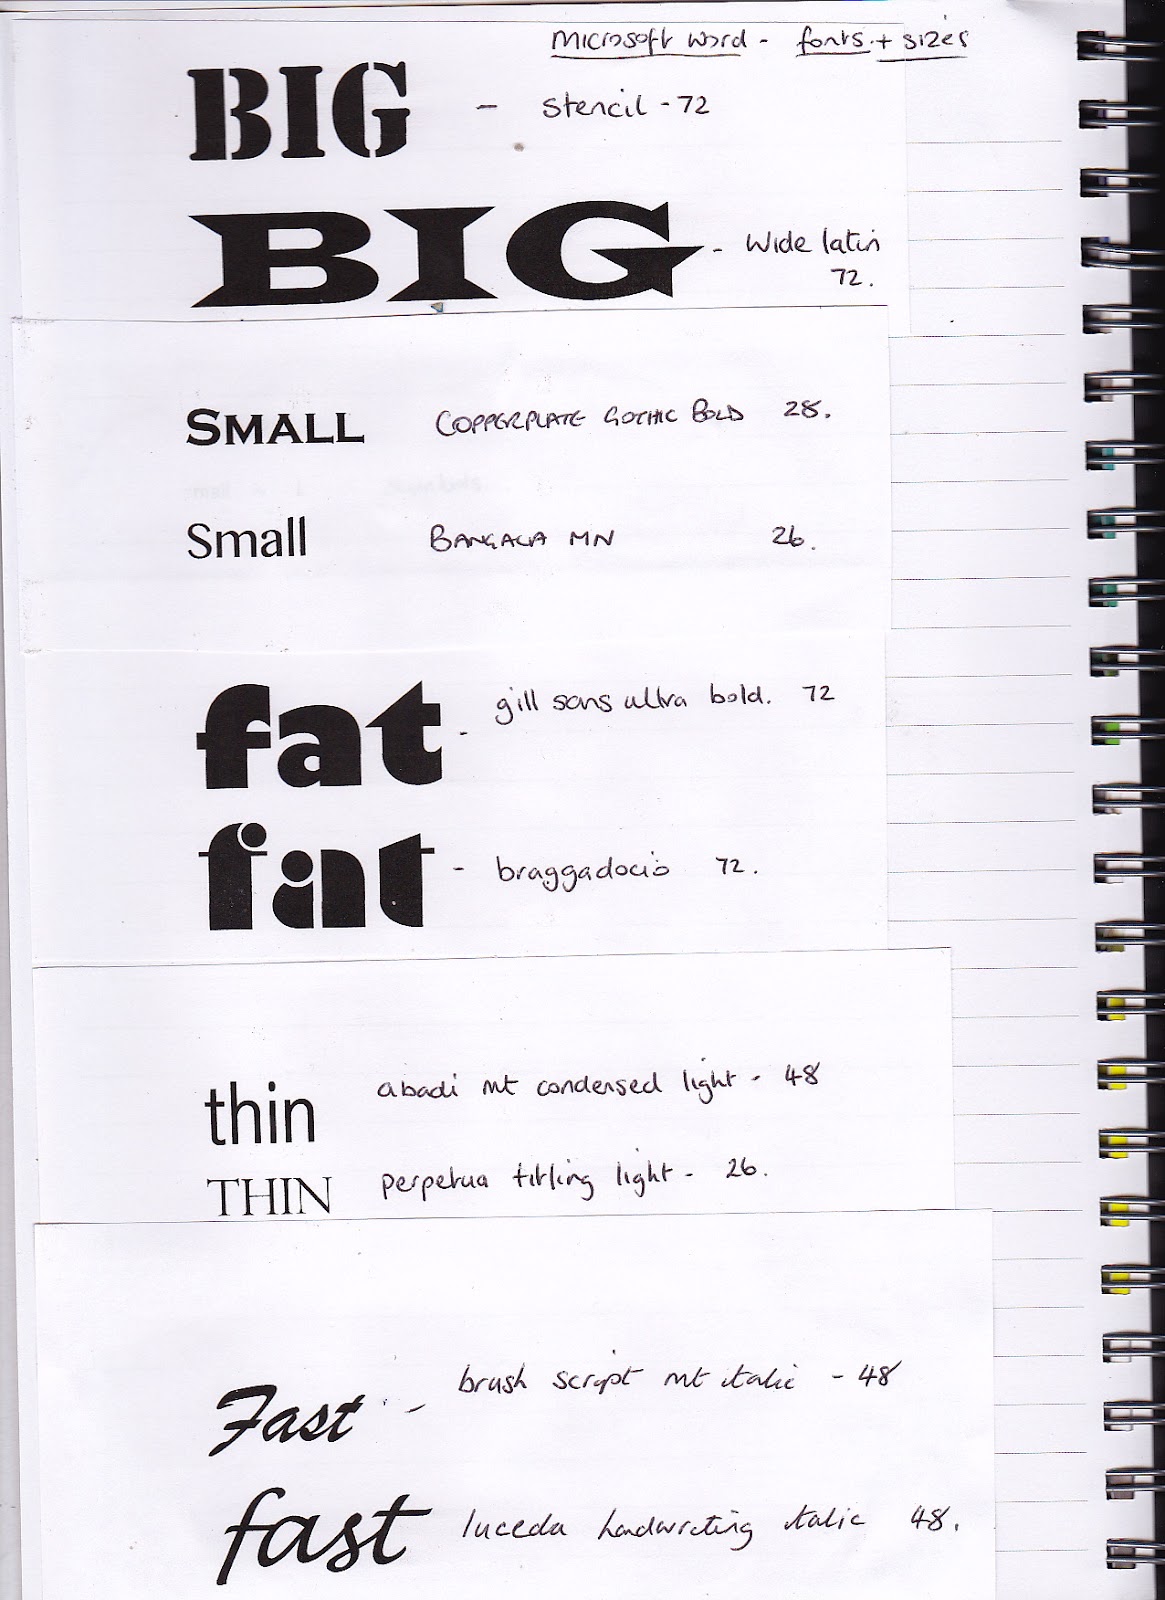 microsoft word - fonts + sizes
BIG - stencil - 72
BIG - wide latin
72.
SMALL COPPERPLATE GOTHIC BOLD 28.
Small BANGALA MN 26.
fat - gill sans ultra bold. 72
fat - braggadocio 72.
thin abadi mt condensed light - 48
THIN perpetua titling light - 26.
Fast - brush script mt italic - 48
fast luceda handwriting italic 48.